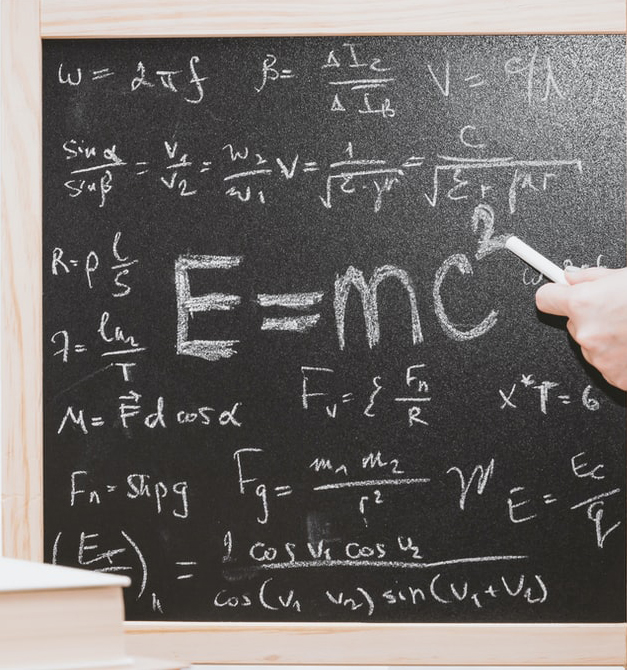 ω = 2πf β = ΔI_c/ΔI_B V = c/λ
sin α/sin β = v_1/v_2 = w_2/w_1 V = 1/√(ε·μ) = c/√(ε_r μ_r)
R = ρ l/S
E = mc²
λ = ln 2/T
F_v = ξ F_n/R X*T = 6
M = F⃗ d cos α
F_n = Shρg F_g = m_1 m_2/r² E = E_c/q
( )_h = 2 cos v_1 cos v_2/cos(v_1 v_2) sin(v_1+v_2)